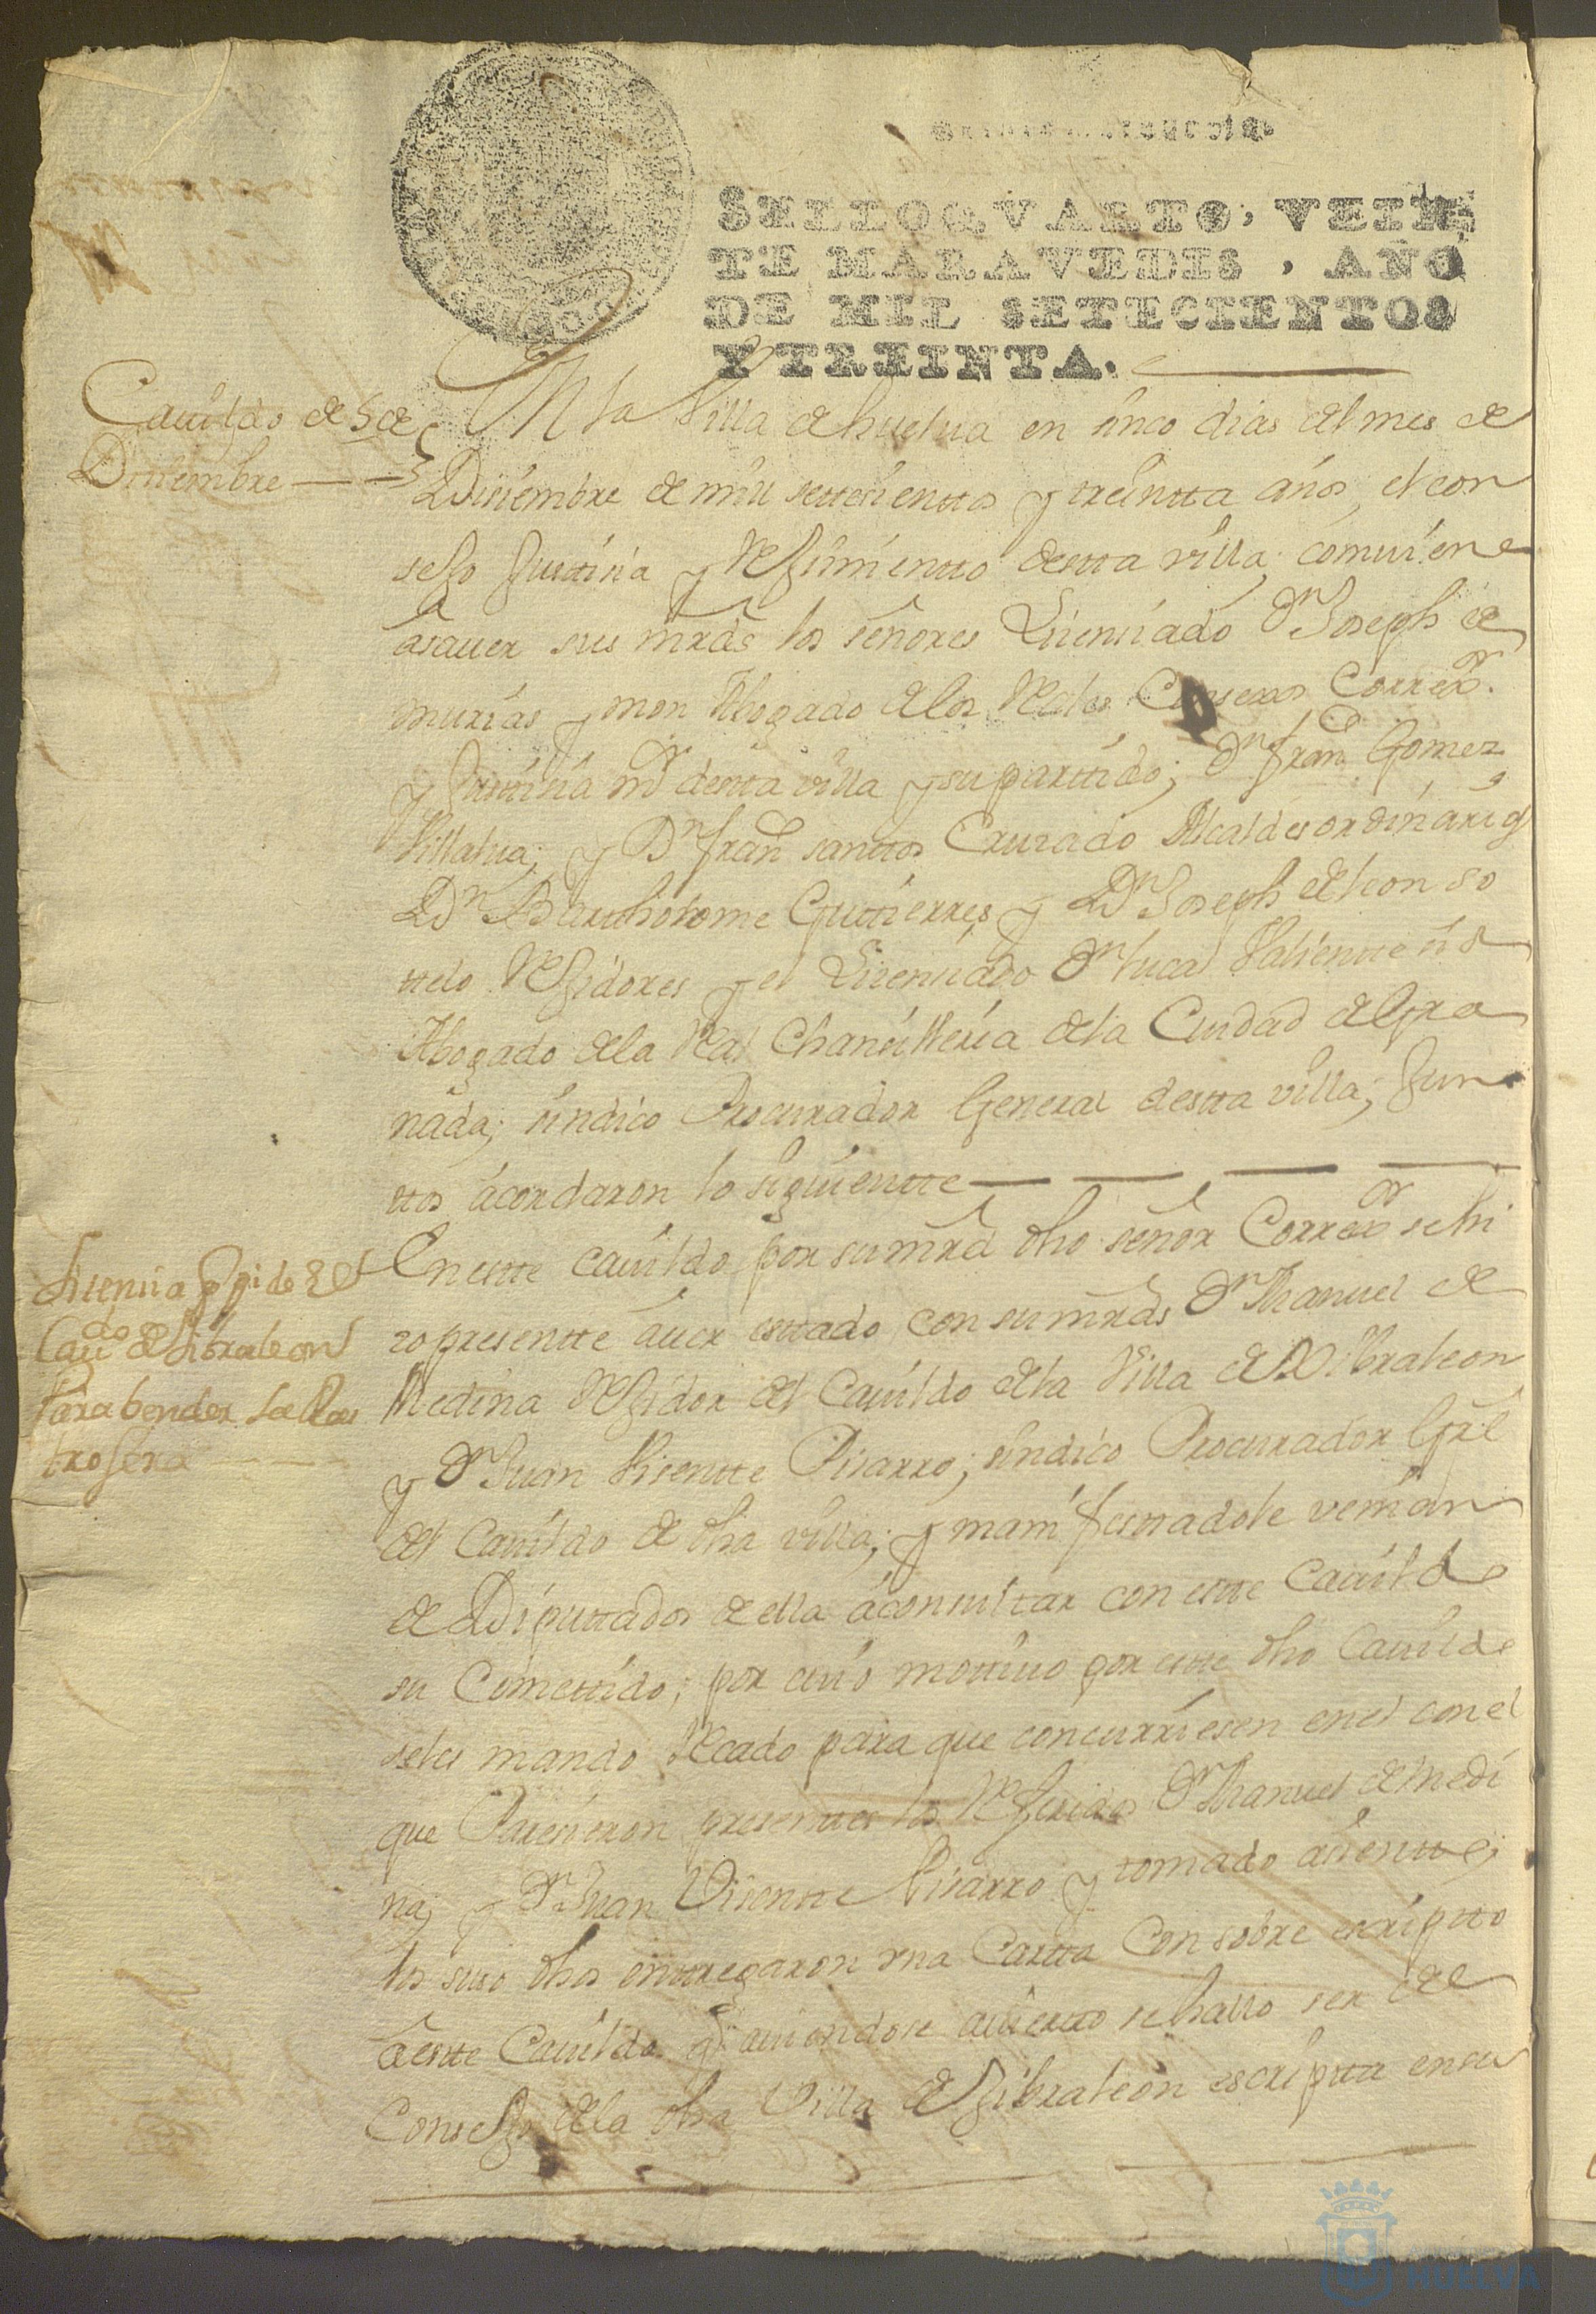 SELLO QVARTO, VEIN
TE MARAVEDIS, AÑO
DE MIL SETECIENTOS
Y TREINTA.
Cauildo de 5 de
Disiembre
En la Villa de huelua en sinco dias del mes de
Disiembre de mill settesienttos y treintta años, el con
sejo Justtisia y Rejimientto destta villa; comuiene
asauer sus mrds los señores Lisensiado Dn Joseph de
murias y mon Abogado de los Rs Consexos Correxor
y Justtisia mor desta villa y su parttido; Dn franco Gomez
Villalua; y Dn franco santtos Cruzado Alcaldes ordinarios
Dn Bartholome Gutierres y Dn Joseph de leon so
ttelo Rejidores y el Lisensiado Dn lucas Valientte
Abogado de la Real Chansilleria de la Ciudad de Gra
nada; sindico Procurador General destta villa; Jun
ttos acordaron lo siguientte
En estte cauildo por su mrd dho señor Correxor se hi
zo presentte auer esttado con su mrds Dn Manuel de
Medina Rejidor del Cauildo de la Villa de Jibraleon
y Dn Juan Visentte Pisarro; sindico Procurador Grl
del Cauildo de dha villa; y manifesttadole venian
de Diputtados de ella a consultar con estte Cauildo
su Comettido; por cuio mottiuo por estte dho Cauildo
se les mando Recado para que concurriesen en el con el
que Paresieron presentes los Referidos Dn Manuel de Medi
na; y Dn Juan Visentte Pisarro y tomado asientto;
los suso dhos enttregaron vna Cartta Con sobre escriptto
a estte Cauildo q auiendose auiertto se hallo ser de el
Consejo de la dha Villa de Jibraleon escriptta en su
Lisensia q pide el
Caudo de Jibraleon
Para bender la Ras
trojera
HUELVA